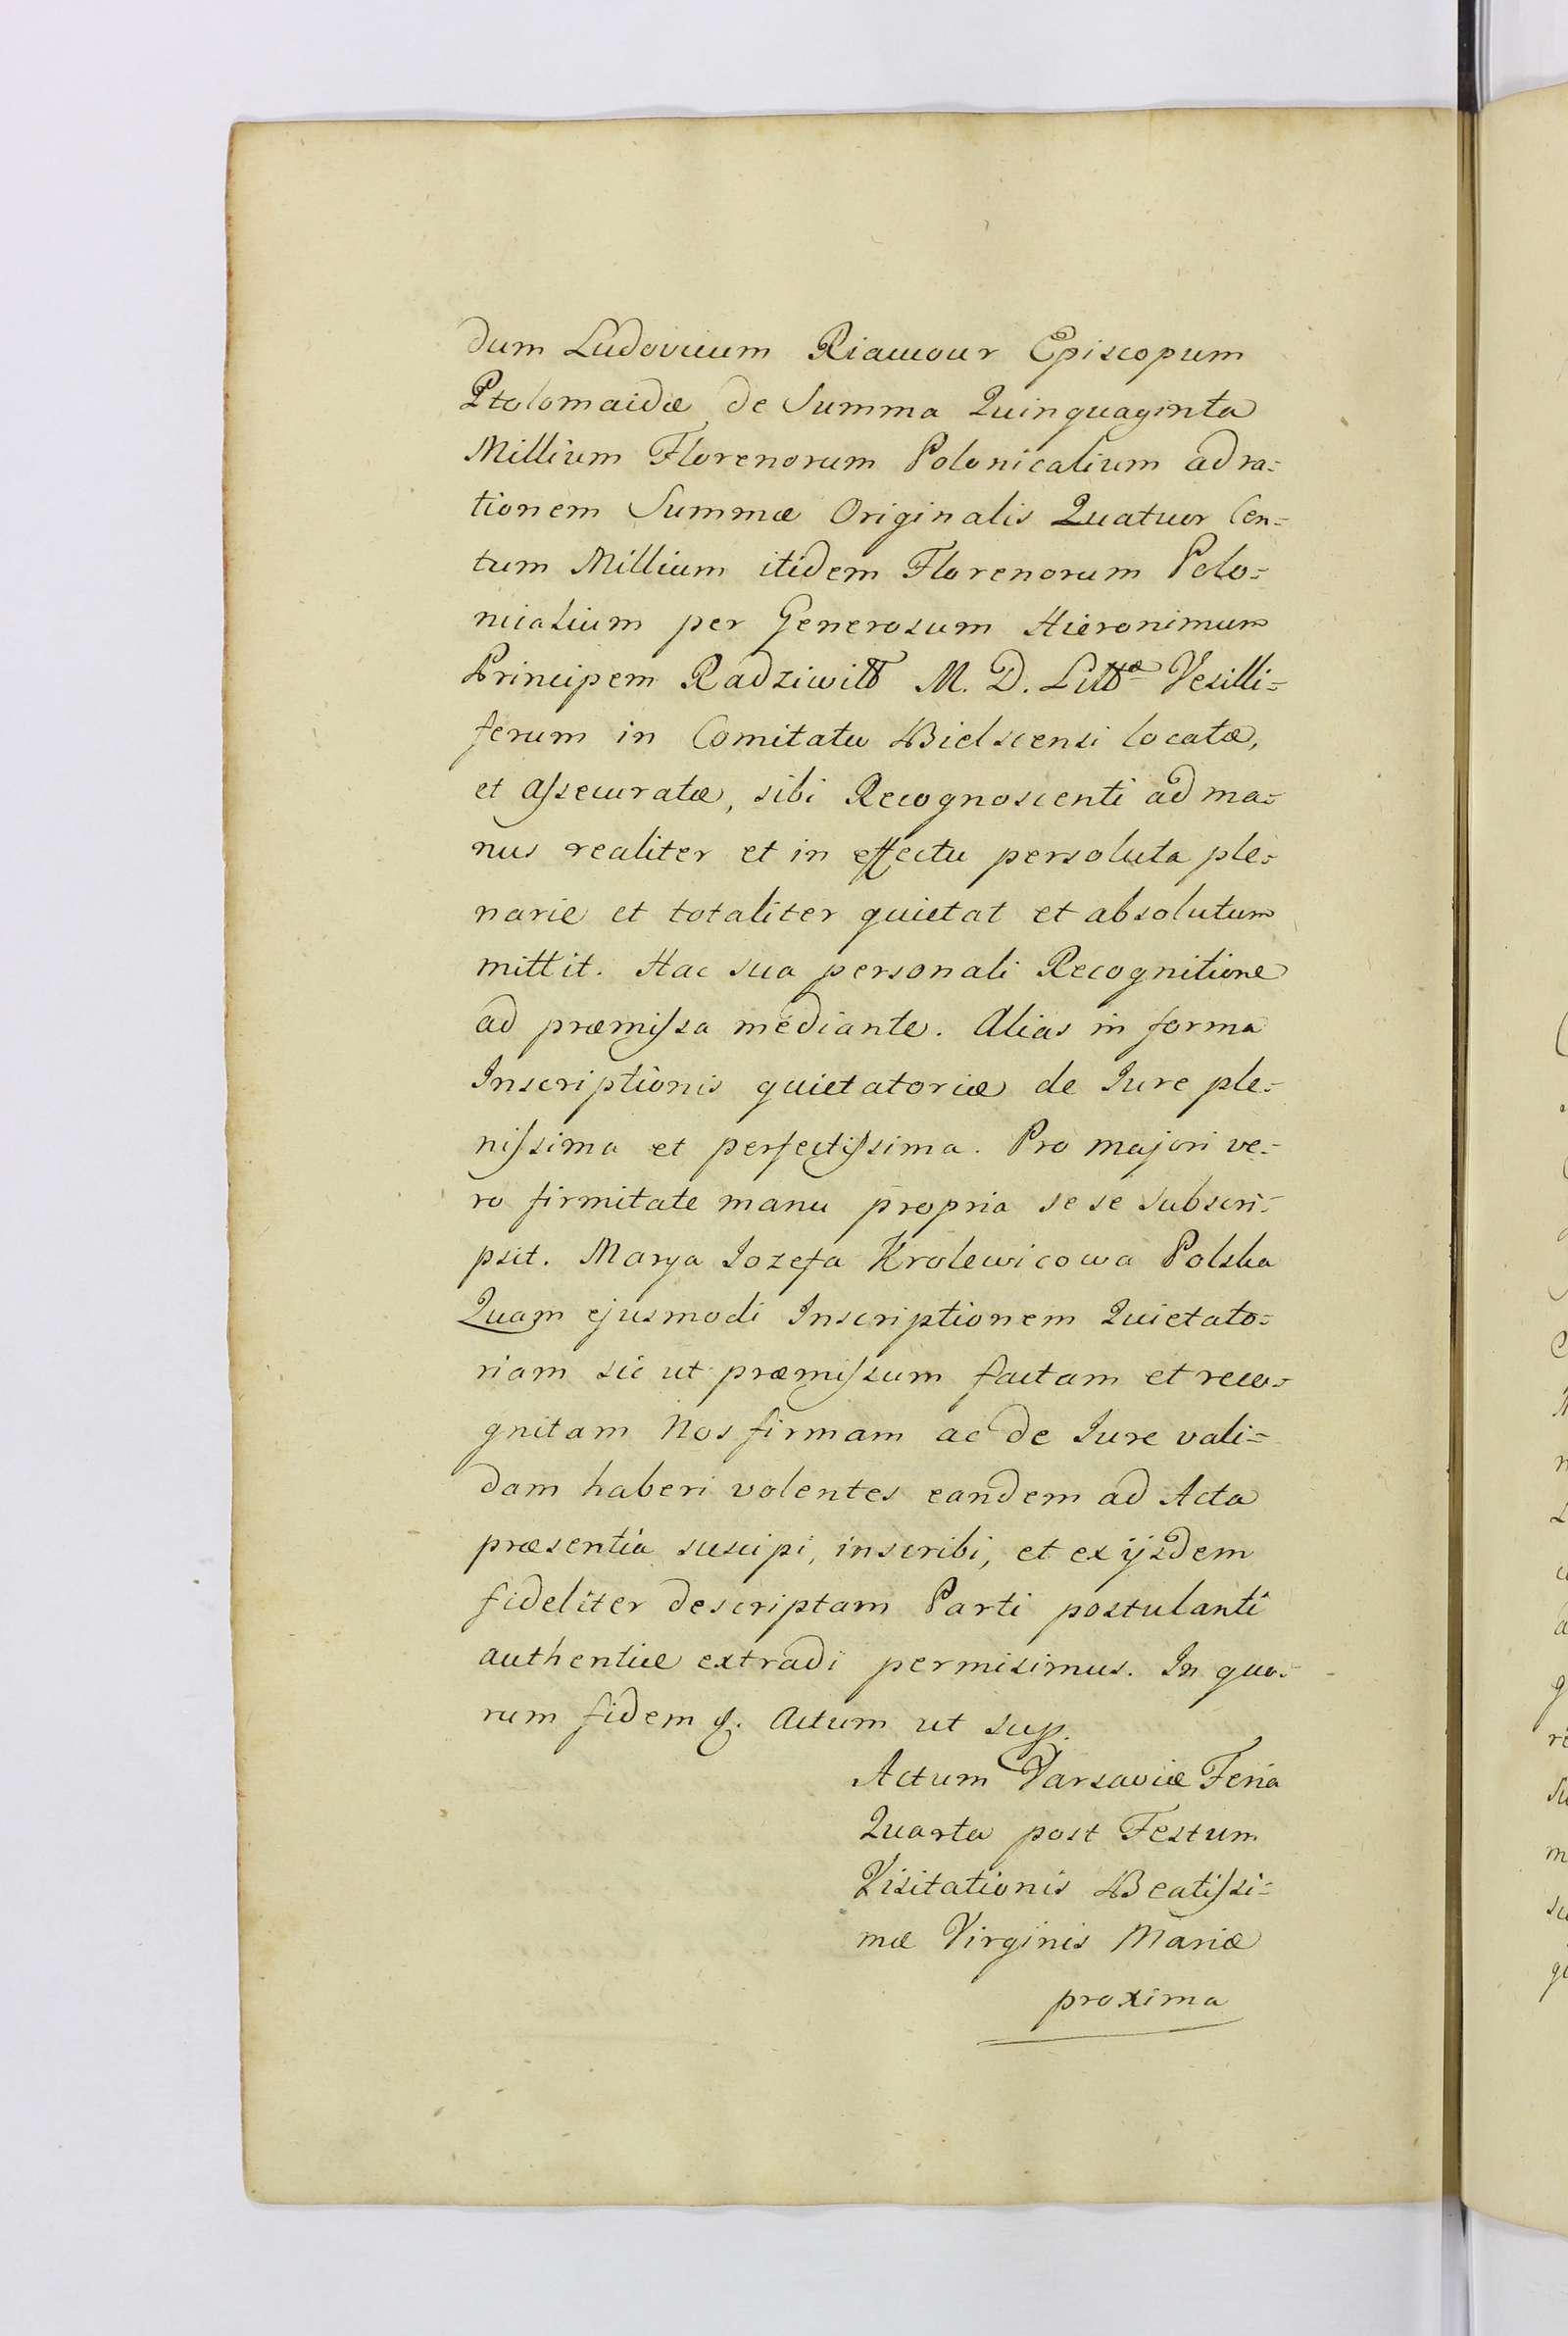 dum Ludovicum Riaucour Episcopum
Ptolomaidæ de Summa Quinquaginta
Millium Florenorum Polonicalium ad ra=
tionem Summæ Originalis Quatuor Cen=
tum Millium itidem Florenorum Polo=
nicalium per Generosum Hieronimum
Principem Radziwiłł M. D. Littæ Vexilli=
ferum in Comitatu Bielscensi locatæ,
et assecuratæ, sibi Recognoscenti ad ma=
nus realiter et in effectu persoluta ple=
narie et totaliter quietat et absolutum
mittit. Hac sua personali Recognitione
ad præmissa mediante. Alias in forma
Inscriptionis quietatoriæ de Jure ple=
nissima et perfectissima. Pro majori ve=
ro firmitate manu propria se se subscri=
psit. Marya Jozefa Krolewicowa Polska
Quam ejusmodi Inscriptionem Quietato=
riam sic ut præmissum factam et reco=
gnitam Nos firmam ac de Jure vali=
dam haberi volentes eandem ad Acta
præsentia suscipi, inscribi, et ex ijsdem
fideliter descriptam Parti postulanti
authentice extradi permisimus. In quo=
rum fidem &. Actum ut sup.
Actum Varsaviæ Feria
Quarta post Festum
Visitationis Beatissi=
mæ Virginis Mariæ
proxima